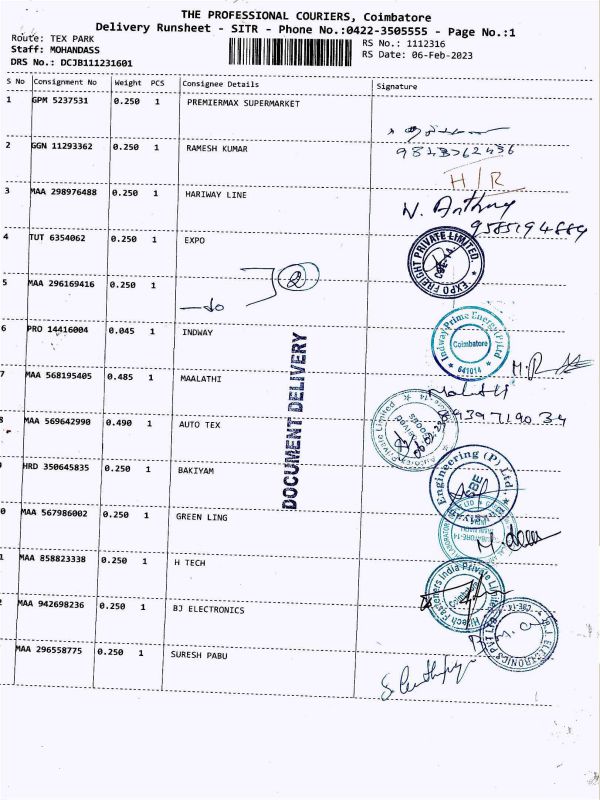 THE PROFESSIONAL COURIERS, Coimbatore
Delivery Runsheet - SITR - Phone No.:0422-3505555 - Page No.:1
Route: TEX PARK
Staff: MOHANDASS
DRS No.: DCJB111231601
RS No.: 1112316
RS Date: 06-Feb-2023
S No Consignment No Weight PCS Consignee Details Signature
1 GPM 5237531 0.250 1 PREMIERMAX SUPERMARKET
2 GGN 11293362 0.250 1 RAMESH KUMAR
H/R
3 MAA 298976488 0.250 1 HARIWAY LINE N. Anthony
9585194884
4 TUT 6354062 0.250 1 EXPO
EXPO FREIGHT PRIVATE LIMITED
5 MAA 296169416 0.250 1
2
—do
6 PRO 14416004 0.045 1 INDWAY
Indway Prime Energy (P) Ltd
Coimbatore
641014
7 MAA 568195405 0.485 1 MAALATHI
Malathi
9397719034
DOCUMENT DELIVERY
8 MAA 569642990 0.490 1 AUTO TEX
Private Limited
9 HRD 350645835 0.250 1 BAKIYAM
Engineering (P) Ltd
0 GREEN LING MAA 567986002 0.250 1
1 MAA 858823338 0.250 1 H TECH
Hitech Fasteners India Private Limited
Coimbatore
2 MAA 942698236 0.250 1 BJ ELECTRONICS
B.J. ELECTRONICS PVT LTD
CBE-14
MAA 296558775 0.250 1 SURESH PABU